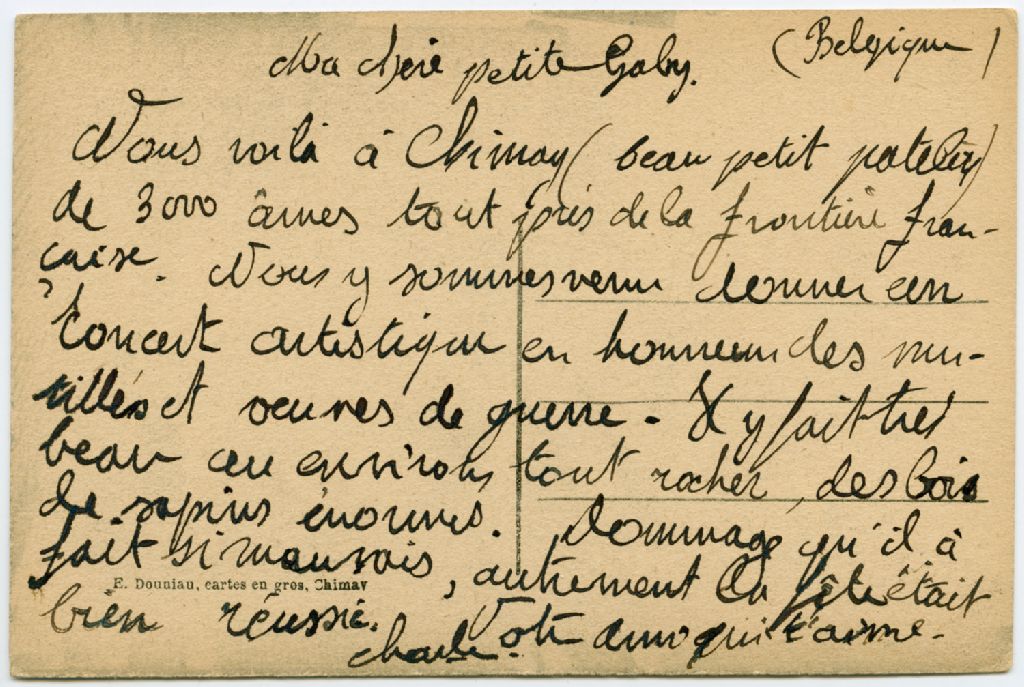 (Belgique)
Ma chère petite Gaby.
Nous voilà à Chimay (beau petit patelin)
de 3000 âmes tout près de la frontière fran-
çaise. Nous y sommes venu donner un
Concert artistique en honneur des mu-
tillés et oeuvres de guerre - Il y fait très
beau au environs tout rocher, des bois
de sapins énormes. Dommage qu'il à
fait si mauvais, autrement la fête était
E. Douniau, cartes en gros, Chimay
bien réussie. Votre qui t'aime.
Charles